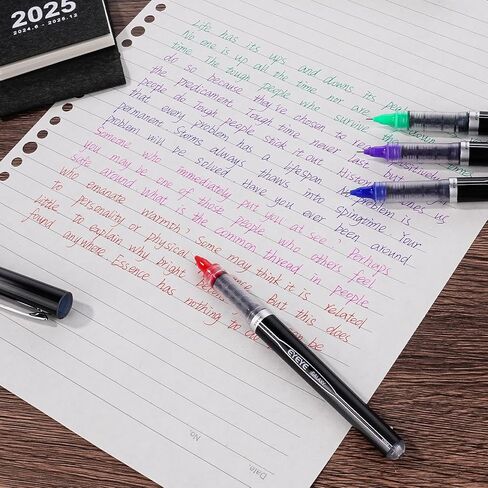 2025
2024.6 - 2026.12
Life has its ups and downs its peaks
No one is up all the time nor are
time. The tough people who survive the down
do so because they've chosen to rea positively
the predicament Tough time never last but
people do. Tough people stick it out. History teaches us
that every problem has a lifespan No problem is
permanent Storms always thaws into Springtime Your
problem will be solved Have you ever been around
Someone who immediately put you at Perhaps
you may be one of these people who others feel
safe around what is the common thread in people
who emanate warmth? Some may think it is related
To personality or physical But this does
little To explain why bright can be
found anywhere. Essence has nothing to do
EYEYE
No.
Date.